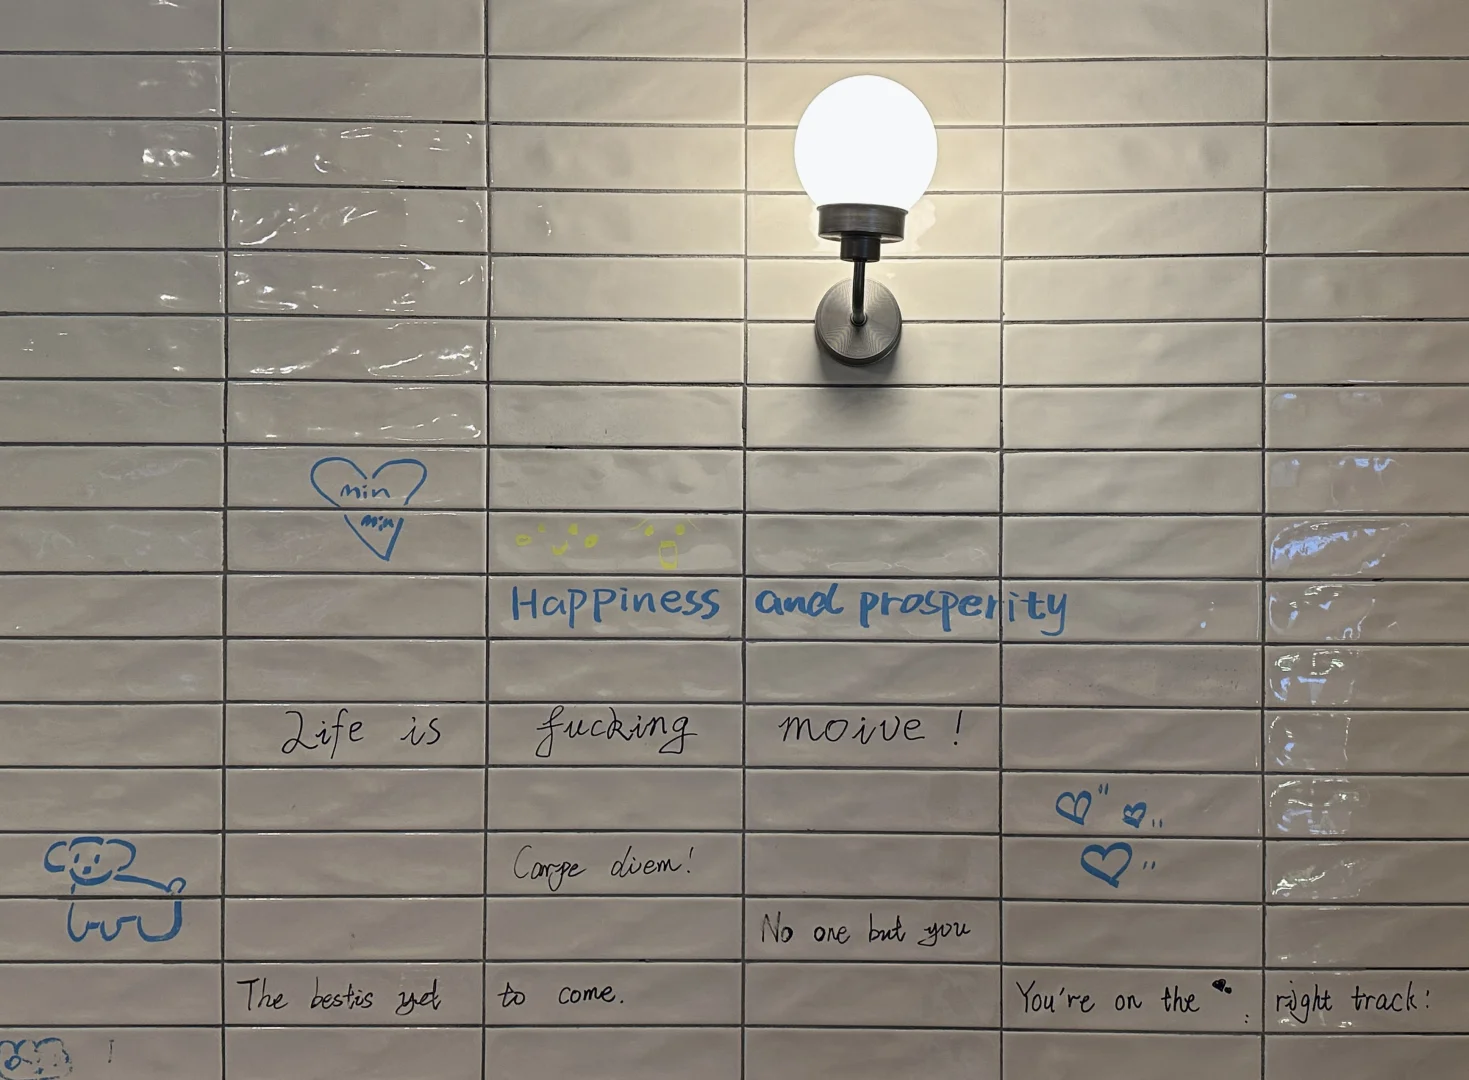 min
min
Happiness and prosperity
Life is fucking moive !
Carpe diem!
No one but you
The best is yet to come.
You're on the right track!